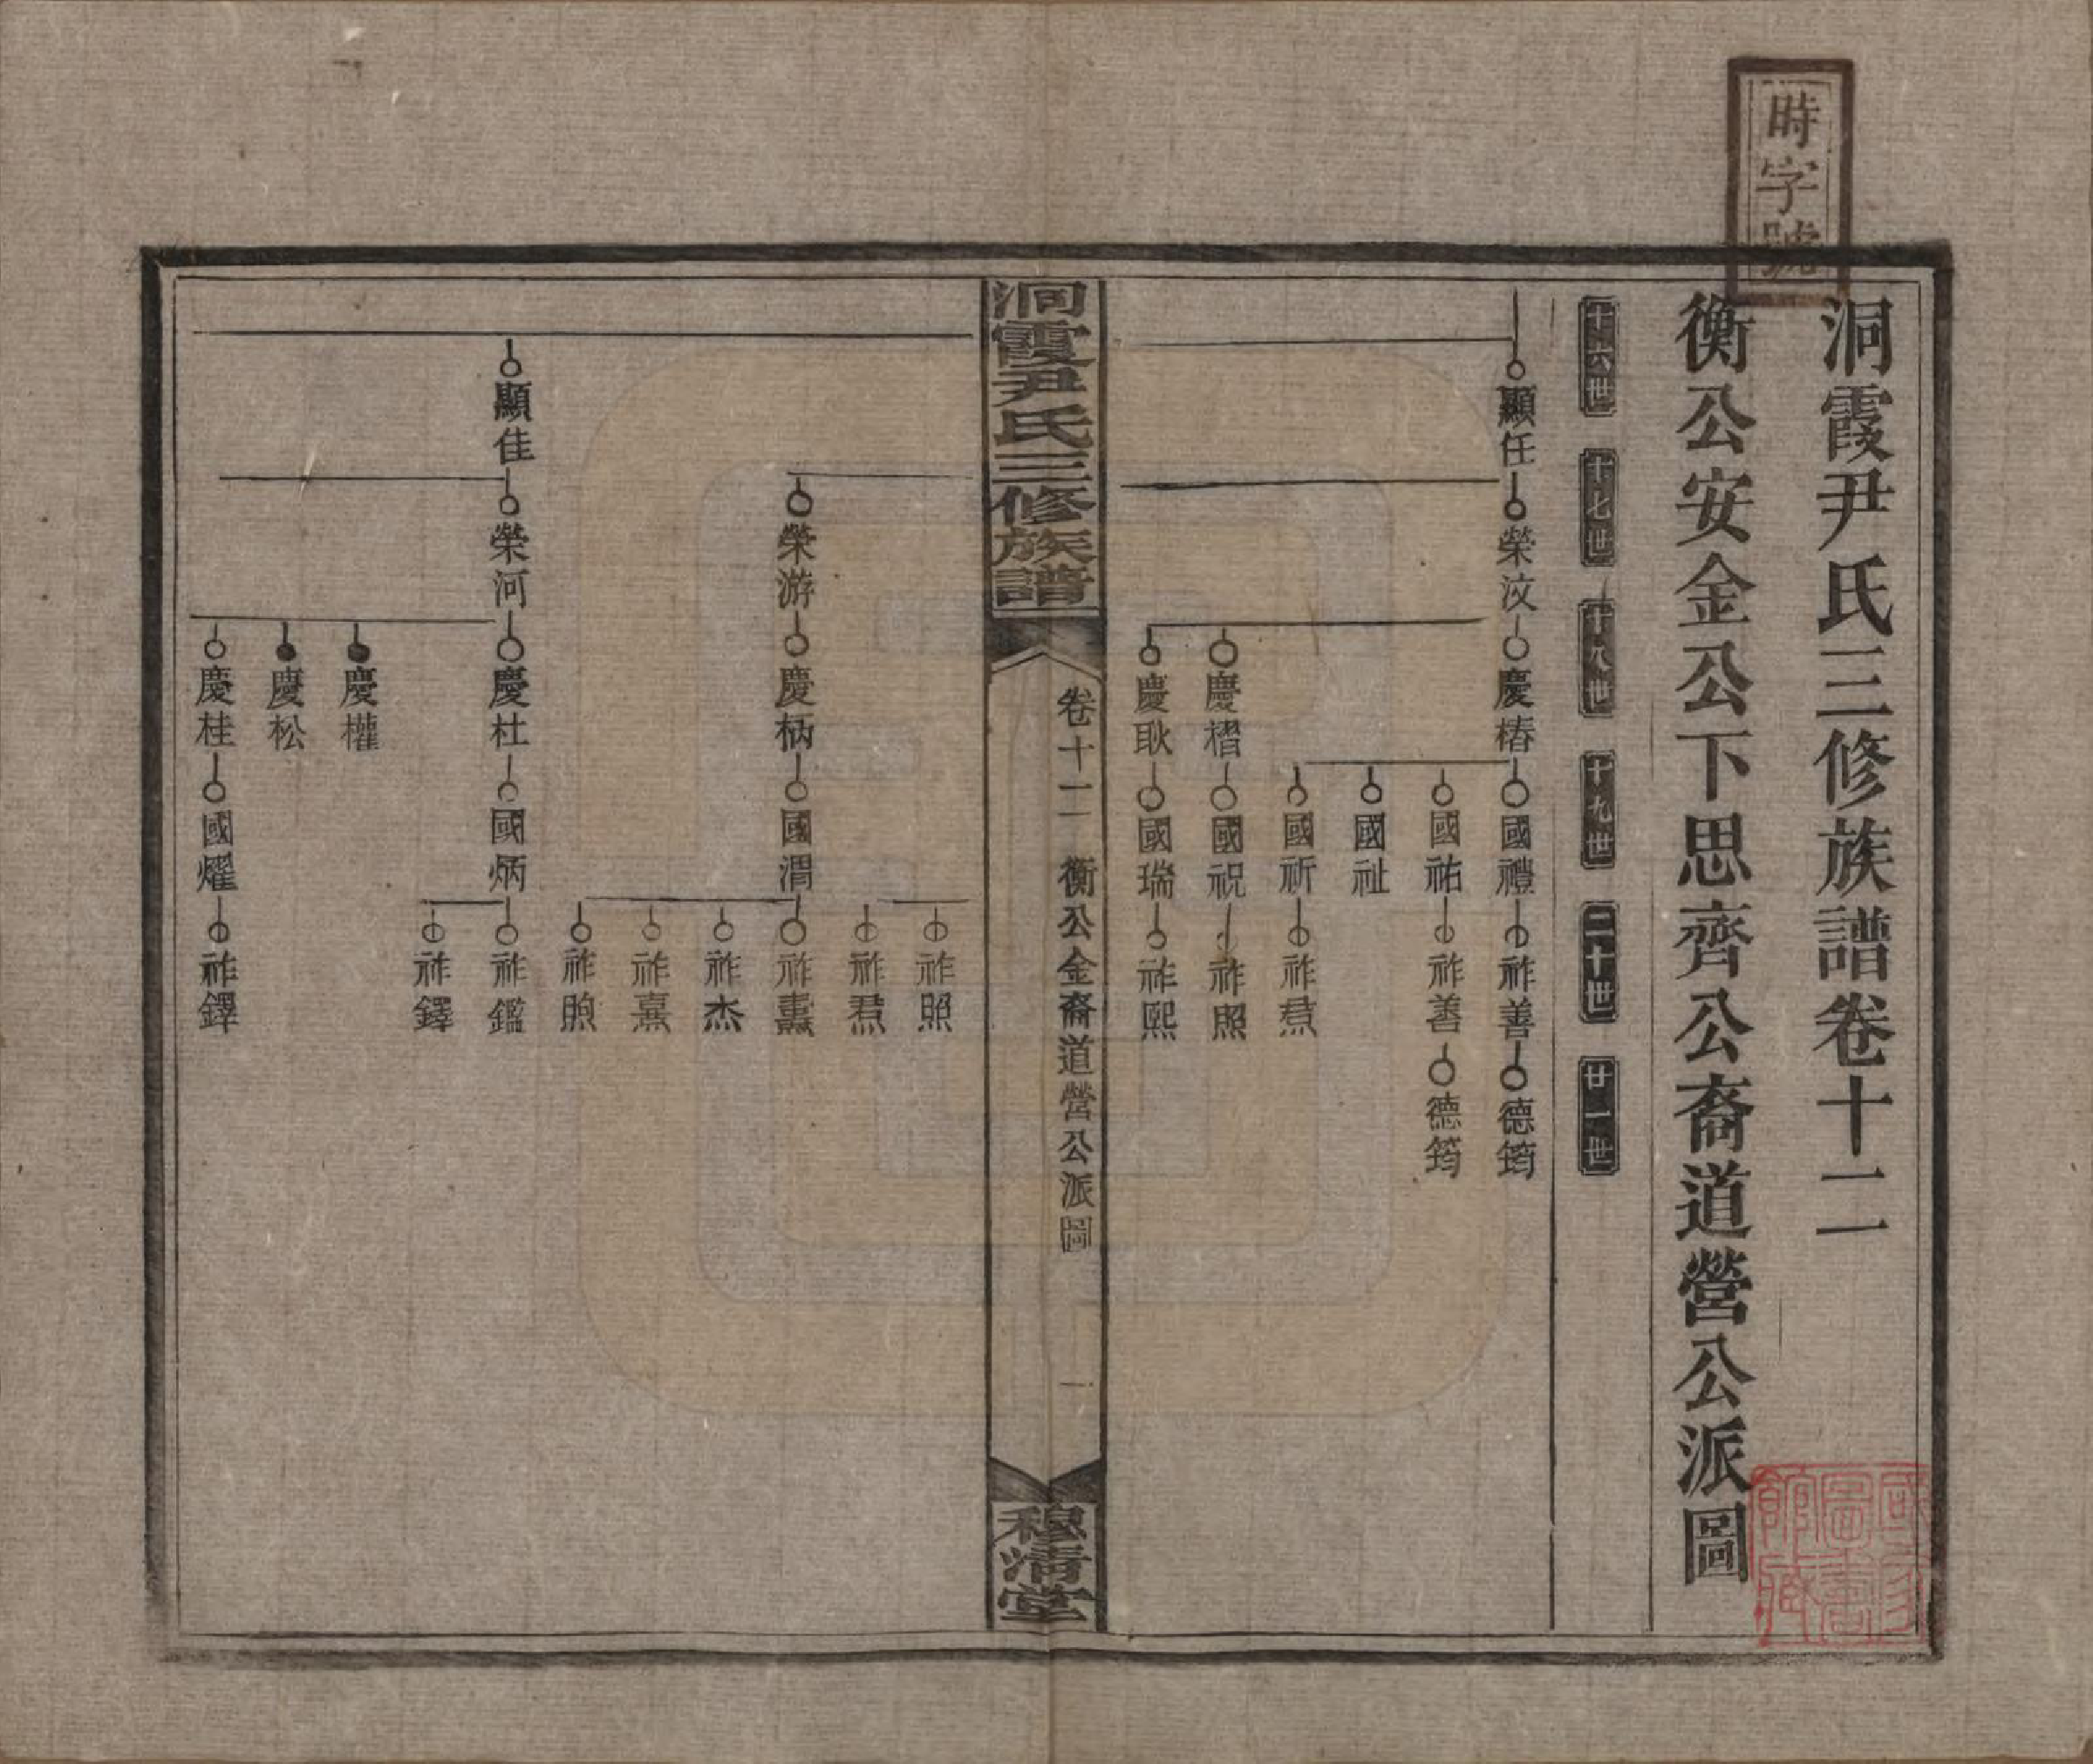 時字號
洞霞尹氏三修族譜卷十二
衡公安金公下思齊公裔道營公派圖
十六世 十七世 十八世 十九世 二十世 廿一世
顯任 榮汶 慶椿 國禮 祚善 德筠
國祐 祚善 德筠
國祉
國祈 祚焄
慶槢 國祝 祚照
慶耿 國瑞 祚熙
洞霞尹氏三修族譜 卷十二 衡公金裔道營公派圖 一 穆清堂
祚照
祚焄
榮游 慶柄 國渭 祚燾
祚杰
祚熹
祚煦
顯佳 榮河 慶杜 國炳 祚鑑
祚鐸
慶權
慶松
慶桂 國燿 祚鐸
國家圖書館藏